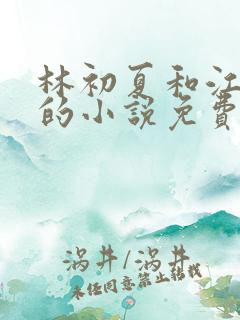 林初夏和江
的小说免費
涡井/涡井
未经同意禁止转载